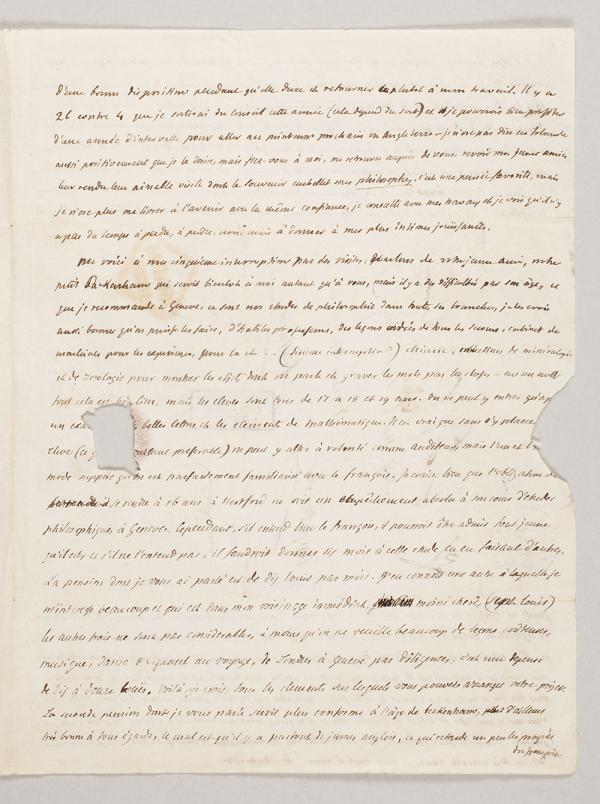 d'une bonne disposition pendant qu'elle dure et retourner au plutot à mon travail. Il y a
26 contre 4 que je sortirai du conseil cette année (cela depend du sort) et je pourrois bien profiter
d'une année d'intervalle pour aller au printems prochain en Angleterre — je n'ose pas dire en
aussi positivement que je le desire, mais fiez-vous à moi, me retrouver auprès de vous, revoir mes jeunes amies
leur rendre leur aimable visite dont le souvenir embellit mes philosophes, c'est une pensée favorite, mais
je n'ose plus me livrer à l'avenir avec la même confiance, je consulte avec mes travaux et je vois qu'il n'y
a pas du temps à perdre, à perdre, mais à donner à mes plus intimes jouissances.
Me voici à ma cinquième interruption par des visites; parlons de notre jeune ami, notre
petit Packenham qui seroit bientôt à moi autant qu'à vous, mais il y a des difficultés par son âge, ce
que je recommande à Geneve, ce sont nos etudes de philosophie dans toutes ses branches, je les crois
aussi bonnes qu'on puisse les faire, d'habiles professeurs, des leçons aidées de tous les secours, cabinet de
machines pour les experiences, pour la et — (sixieme interruption) chimie, collections de mineralogie
et de zoologie pour montrer les objets dont on parle et graver les mots par les choses — en un mot
tout cela est très bien, mais les eleves sont tous de 17 à 18 et 19 ans. On ne peut y entrer qu'après
un exa belles lettres et les elemens de mathématique. Il est vrai que sans s'y placer
eleve (ce q preferable) on peut y aller à volonté comme auditeur, mais l'un et l'
mode suppose qu'on est parfaitement familiarisé avec le françois, je crains bien que l'obligation de
se rendre à 16 ans à Hertford ne soit un empêchement absolu à son cours d'etudes
philosophiques à Geneve, cependant, s'il entend bien le françois, il pourroit être admis tout jeune
qu'il est, et s'il ne l'entend pas, il faudroit donner six mois à cette etude en en faisant d'autres.
La pension dont je vous ai parlé est de dix louis par mois. J'en connois une autre à laquelle je
m'interesse beaucoup et qui est dans mon voisinage immédiat, moins chere, (sept louis)
les autres frais ne sont pas considerables, à moins qu'on ne veuille beaucoup de leçons coûteuses,
musique, danse &c quant au voyage, de Londres à Geneve par diligences, c'est une depense
de dix à douze louis. Voilà je crois, tous les elemens sur lesquels vous pouvez arranger votre projet.
La seconde pension dont je vous parle seroit plus conforme à l'âge de Packenham, elle est d'ailleurs
très bonne à tous égards, le mal est qu'il y a partout de jeunes anglois, ce qui retarde un peu les progrès
du françois.